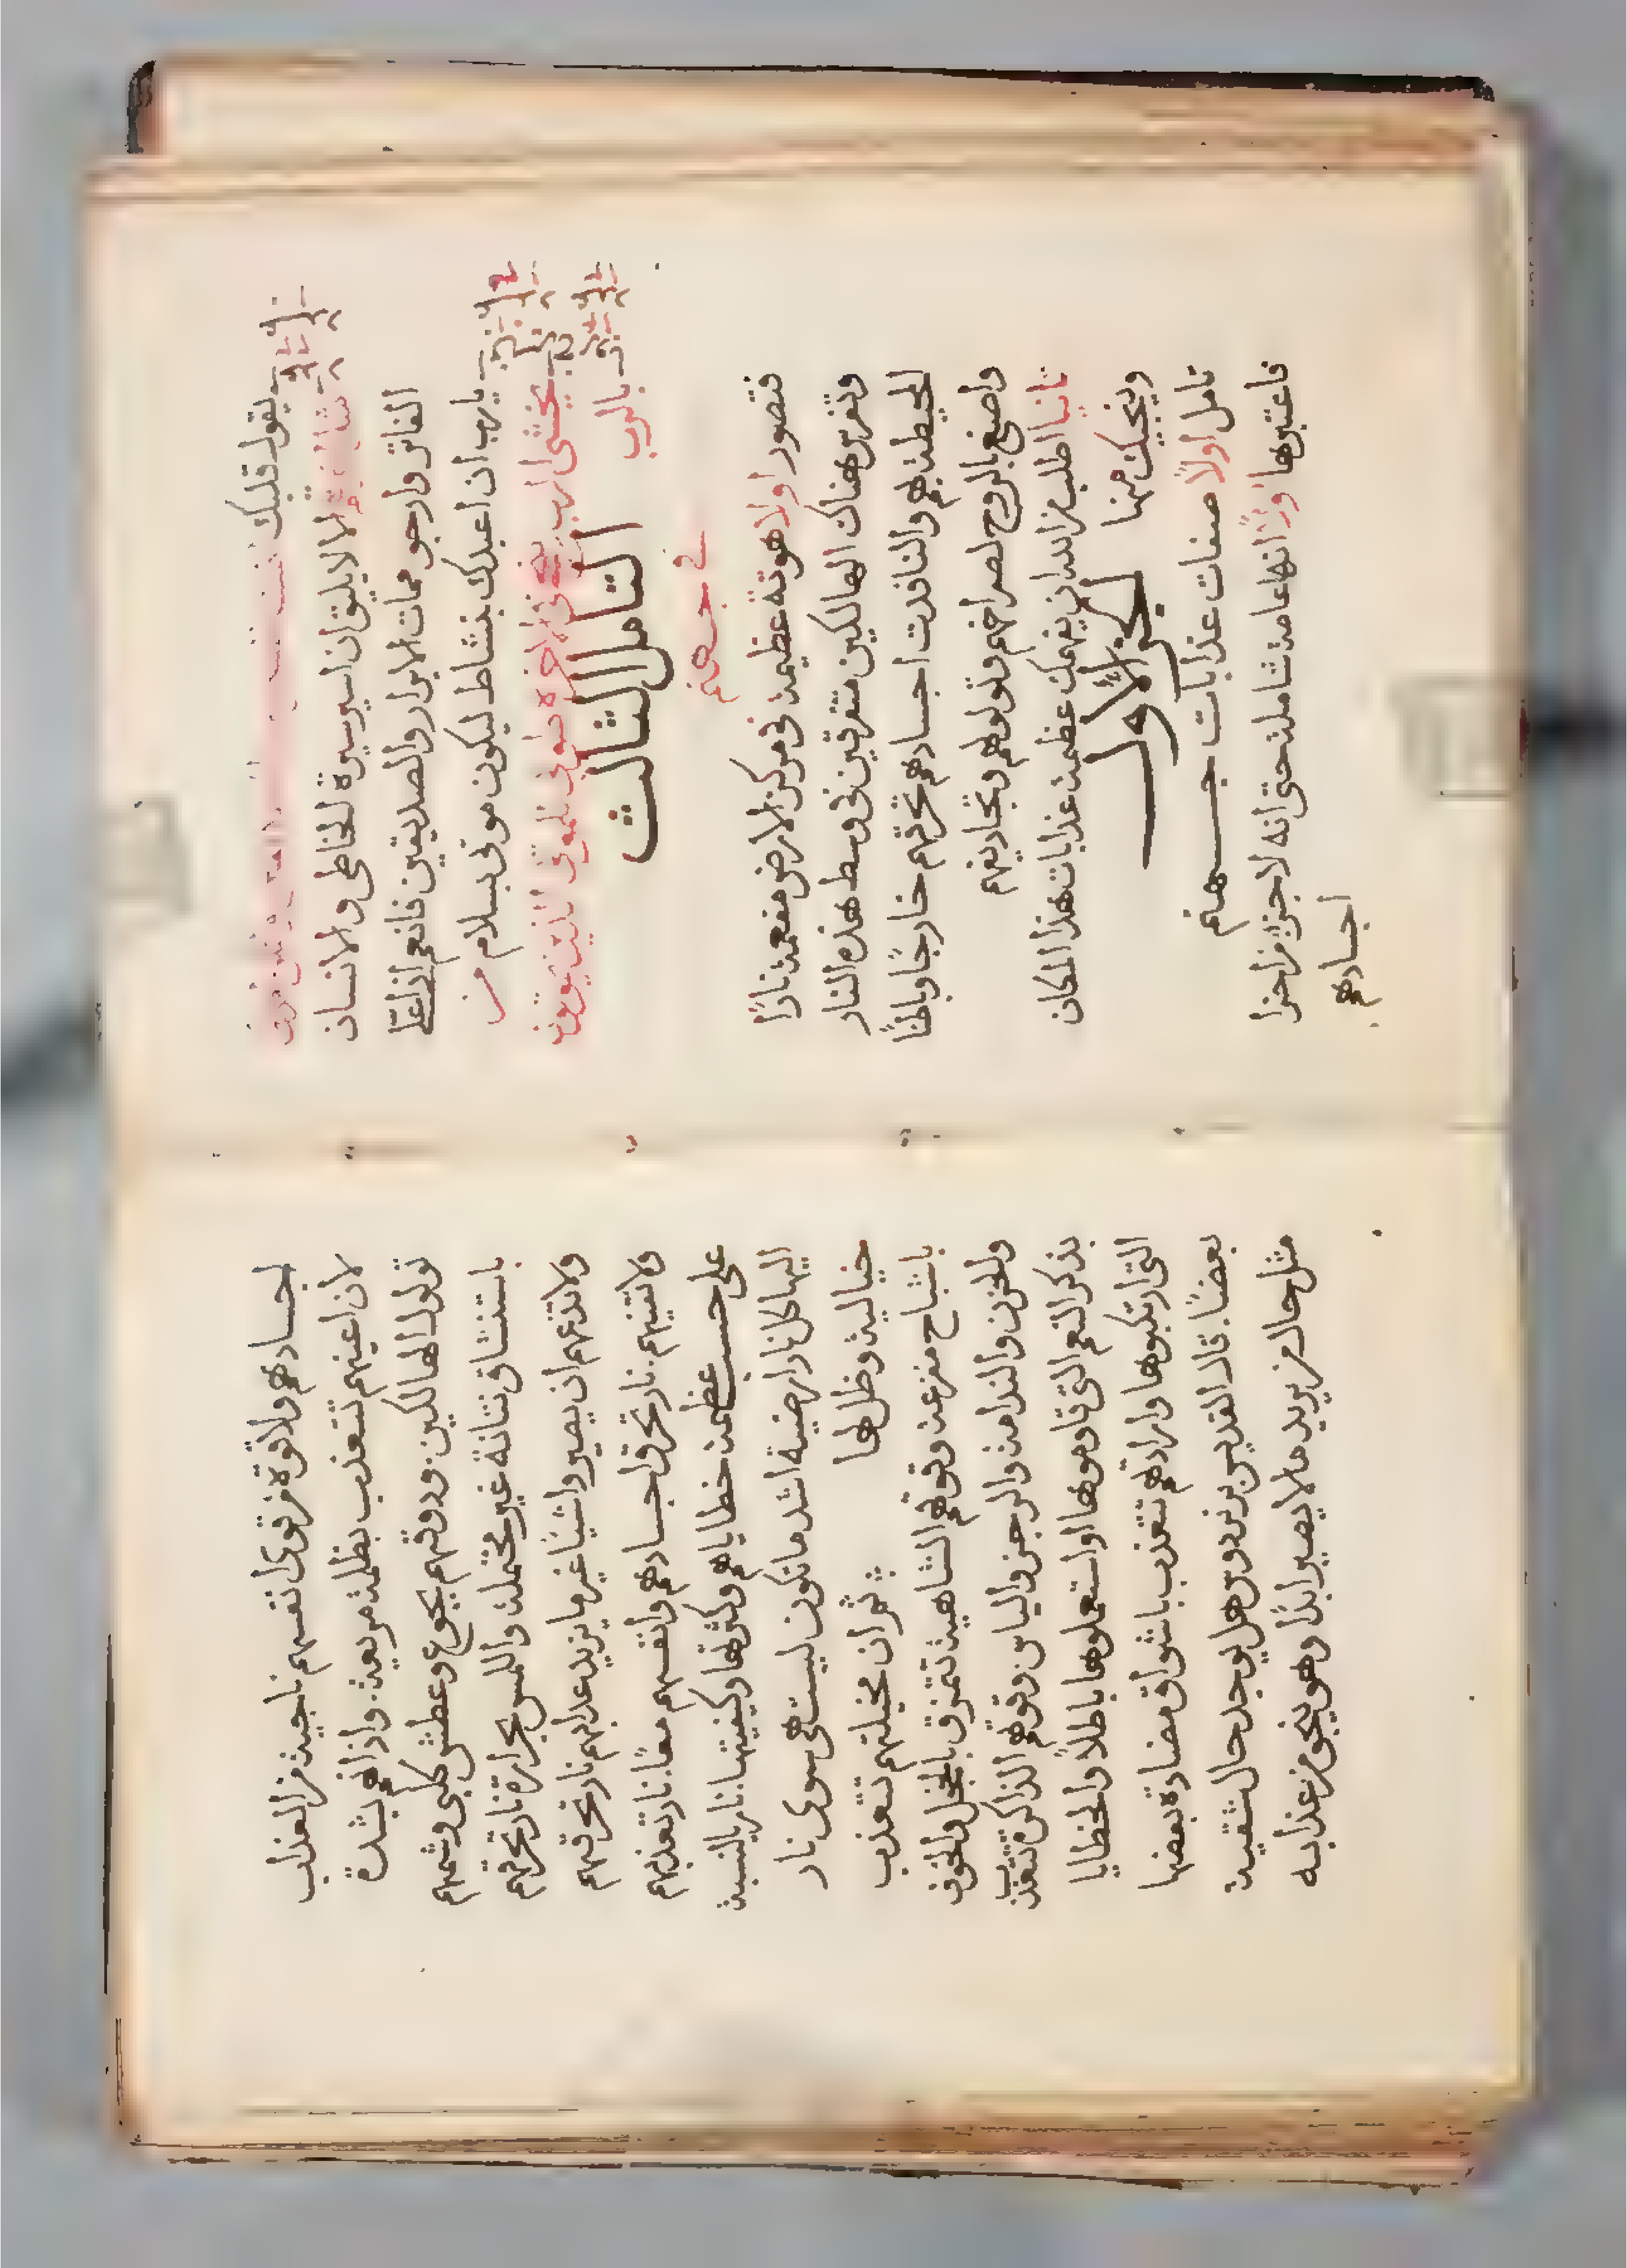 يقول قلبك
الا لا يليق ان اسير سيرة الخاطى والانسان
الفاتر وارجو ممات الابرار والصديقين فانعم اذًا علي
يارب ان اعبدك بنشاط ليكون موتي بسلام من
يخشى الرب في الاخرة طوبى للموتى الذين يموتون
بالرب
التامل الثالث
في جهنم
فتصور اولا هوتة عظيمة في مركز الارض مفعمة نارًا
وتفرس هناك الهالكين متفرقين في وسط هذه النار
المحيطة بهم والنافذت اجسادهم تحرقهم خارجًا وباطنًا
واصغ بالروح لصراخهم وتولولهم وتجاديفهم
ثانيا اطلب من الله ان يفهمك عظمة عذابات هذا المكان
وينجيك منها
الجز الاول
تامل اولاً صفات عذابات جهنم
فاعتبرها اولاً انها عامة شاملة حتى انه لا جزء من اجزا
اجسادهم
اجسادهم ولا قوة من قوى انفسهم ناجية من العذاب
لان اعينهم تتعذب بظلمة مريعة. واذانهم بشدة
تولول الهالكين. وذوقهم بجوع وعطش كلبي وشمهم
باستنشاق نتانة غير محتملة واللمس بحرارة نار تحرقهم
ولا تدعهم ان يصيروا شيًا غير ما يزيد عذابهم نار تحرقهم
ولا تفنيهم. نار تحرق اجسادهم وانفسهم معًا. نار تعذبهم
على حسب عظمة خطاياهم وكثرتها وكيفيتها. نار بالنسبة
اليها كل نار ارضية اشد ما تكون ليست هي سوى نار
خيالية وظل لها ثم ان مخيلتهم تتعذب
باشباح مفزعة وقوتهم الشاهية تتمزق بالبخل والخوف
والحزن والندامة والرجز والياس وقوتهم الذاكرة تتعذب
بذكر النعم التي قاوموها او استعملوها باطلاً والخطايا
التي ارتكبوها وارادتهم تتعذب باشواق مضادة بعضها
بعضًا. قال القديس برنردوس هل يوجد حال شقية
مثل حال من يريد ما لا يصير ابدًا وهو ينجي من عذابه